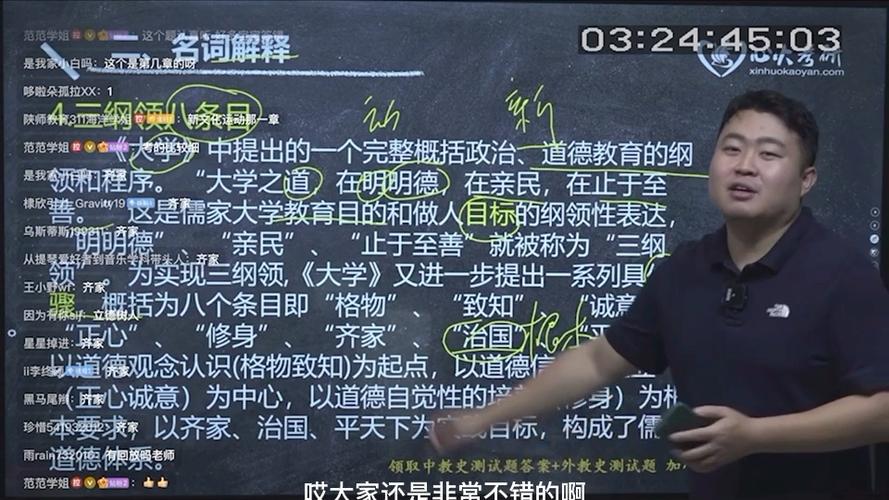 范范学姐 这个题
二、名词解释
03:24:45:03
心火考研
xinhuokaoyan.com
是我家小白吗：这个是第几章的呀
哆啦朵孤拉XX：1
4.三纲领八条目
动
新
陕师教育311海洋学姐 新文化运动那一章
范范学姐 考的比较细
《大学》中提出的一个完整概括政治、道德教育的纲
领和程序。“大学之道，在明明德，在亲民，在止于至
齐家
棣欣引L_Gravity19 齐家
善。”这是儒家大学教育目的和做人目标的纲领性表达，
乌斯蒂斯199311：齐家
“明明德”、“亲民”、“止于至善”就被称为“三纲
从提琴爱好者到音乐学科带头人：齐家
领”。为实现三纲领，《大学》又进一步提出一系列具
王小野wl：齐家
骤，概括为八个条目即“格物”、“致知”、“诚意
因为有你elf：立德树人
“正心”、“修身”、“齐家”、“治国”、“平
根本
星星掉进：齐家
以道德观念认识(格物致知)为起点，以道德信
ii李终 齐家
（正心诚意）为中心，以道德自觉性的培 （修身）为根
黑马尾辫：齐家
本要求，以齐家、治国、平天下为实践目标，构成了儒
珍惜541932012：齐家
道德体系。
雨rain7320103：有回放吗老师
领取中教史测试题答案+外教史测试题 加
范范学姐
哎大家还是非常不错的啊